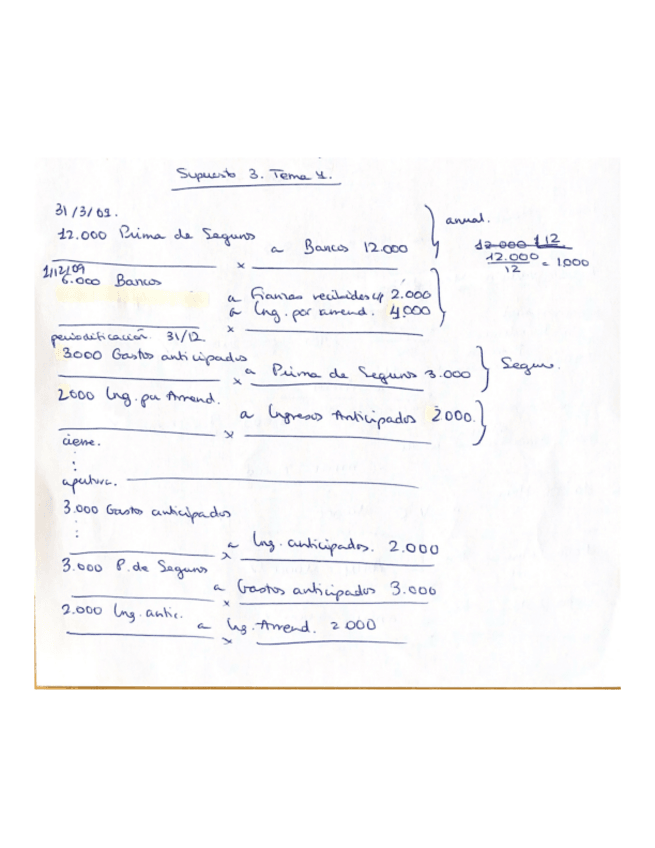 Supuesto 3. Tema 1.
31/3/09.
12.000 Prima de Seguros
a Bancos 12.000
anual.
12.000 112
12.000
12
= 1,000
1/12/09
6.000 Bancos
a Fianzas recibidas c/p 2.000
a Ing. por arrend. 4,000
x
periodificación 31/12.
3000 Gastos anticipados
a Prima de Seguros 3.000
Seguro.
x
2000 Ing. por Arrend.
a Ingresos Anticipados 2000.
x
cierre.
apertura.
3.000 Gastos anticipados
a Ing. anticipados. 2.000
x
3.000 P. de Seguros
a Gastos anticipados 3.000
x
2.000 Ing. antic.
a Ing. Arrend. 2000
x